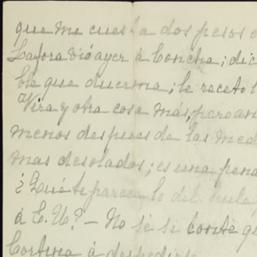 que me cuesta dos pesos d
Lafora vió ayer á Concha; dic
ble que duerma; le recetó l
Vera y otra cosa más, pero an
menos despues de las med
mas desolados; es una pena
¿Qué te parece lo del
á E. U.? — No sé si conté q
Cortina á despedirse